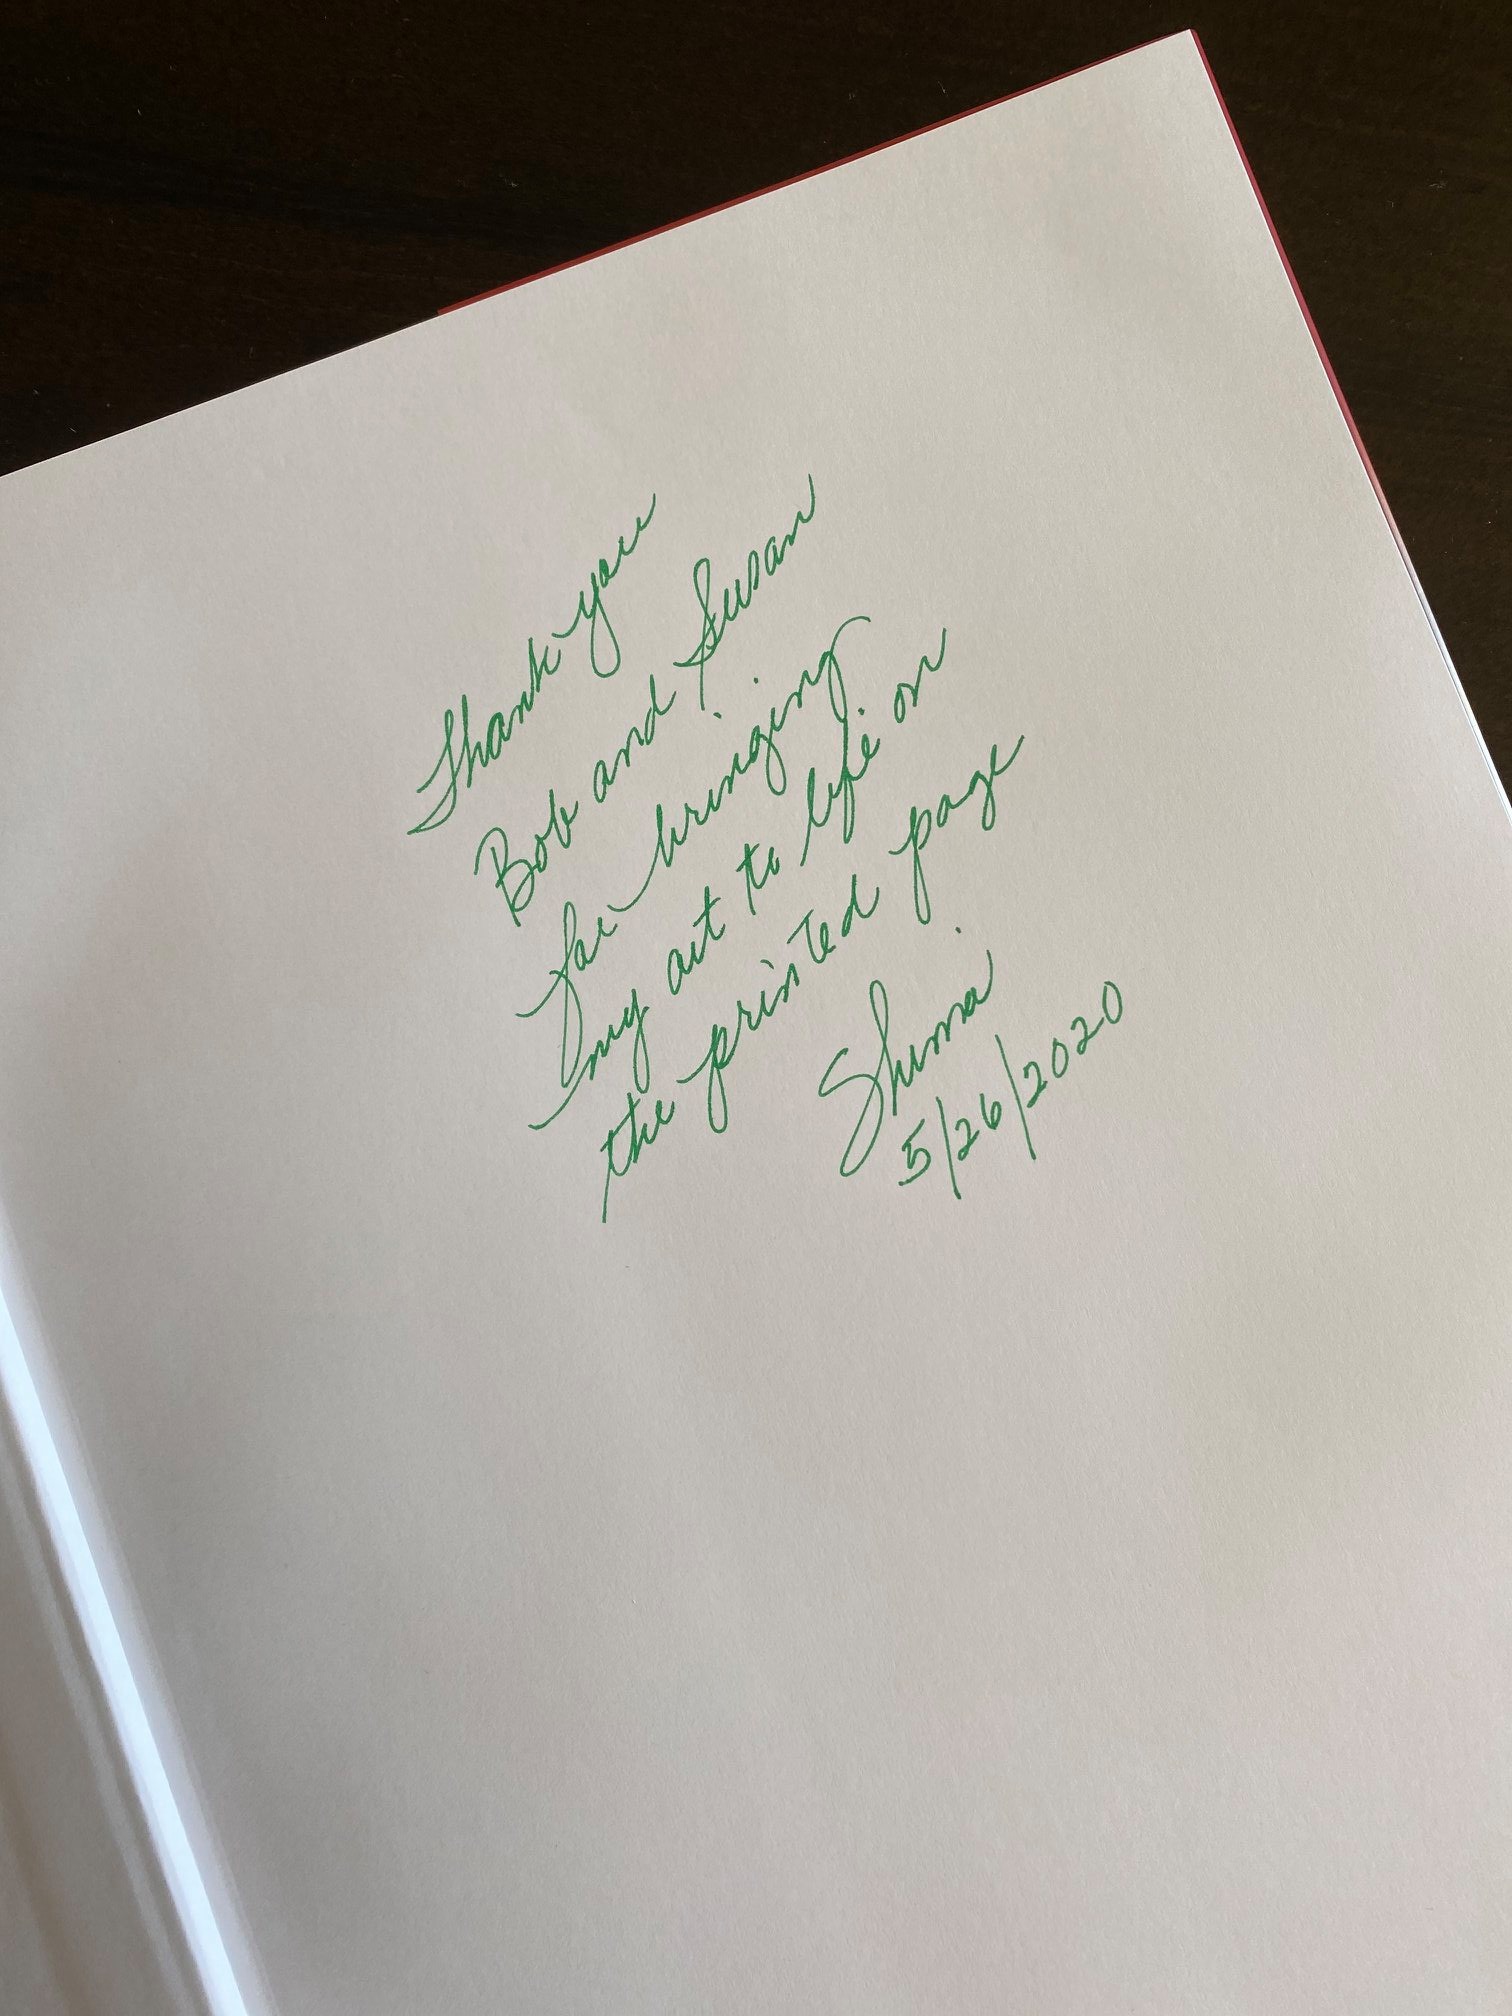 Thank you
Bob and Susan
for bringing
my art to life on
the printed page
Shima
5/26/2020